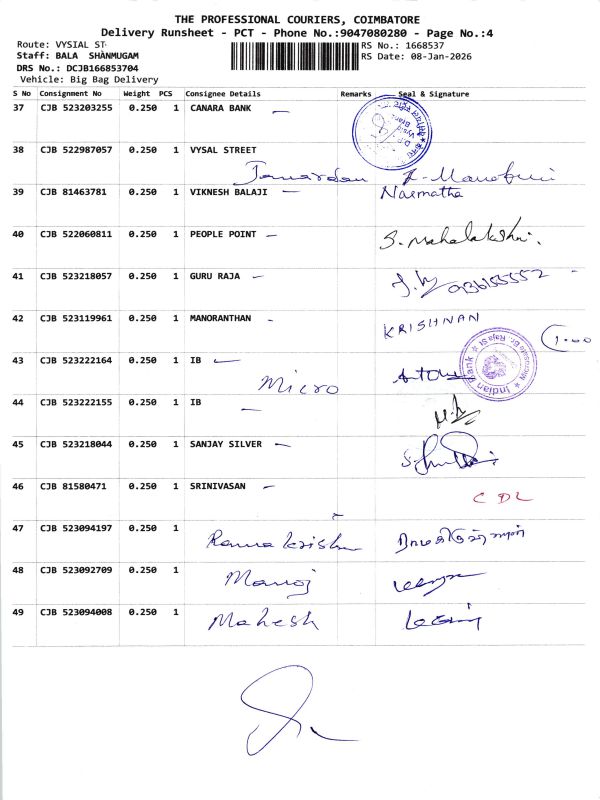 THE PROFESSIONAL COURIERS, COIMBATORE
Delivery Runsheet - PCT - Phone No.:9047080280 - Page No.:4
Route: VYSIAL ST
Staff: BALA SHANMUGAM
DRS No.: DCJB166853704
Vehicle: Big Bag Delivery
RS No.: 1668537
RS Date: 08-Jan-2026
S No Consignment No Weight PCS Consignee Details Remarks Seal & Signature
37 CJB 523203255 0.250 1 CANARA BANK
38 CJB 522987057 0.250 1 VYSAL STREET
Janardan
39 CJB 81463781 0.250 1 VIKNESH BALAJI Narmatha
40 CJB 522060811 0.250 1 PEOPLE POINT S. Mahalakshmi.
41 CJB 523218057 0.250 1 GURU RAJA
42 CJB 523119961 0.250 1 MANORANTHAN KRISHNAN
1.00
43 CJB 523222164 0.250 1 IB
Micro
Indian Bank
44 CJB 523222155 0.250 1 IB
45 CJB 523218044 0.250 1 SANJAY SILVER
46 CJB 81580471 0.250 1 SRINIVASAN
CDL
47 CJB 523094197 0.250 1 Rama krishn
48 CJB 523092709 0.250 1 Manoj
49 CJB 523094008 0.250 1 Mahesh